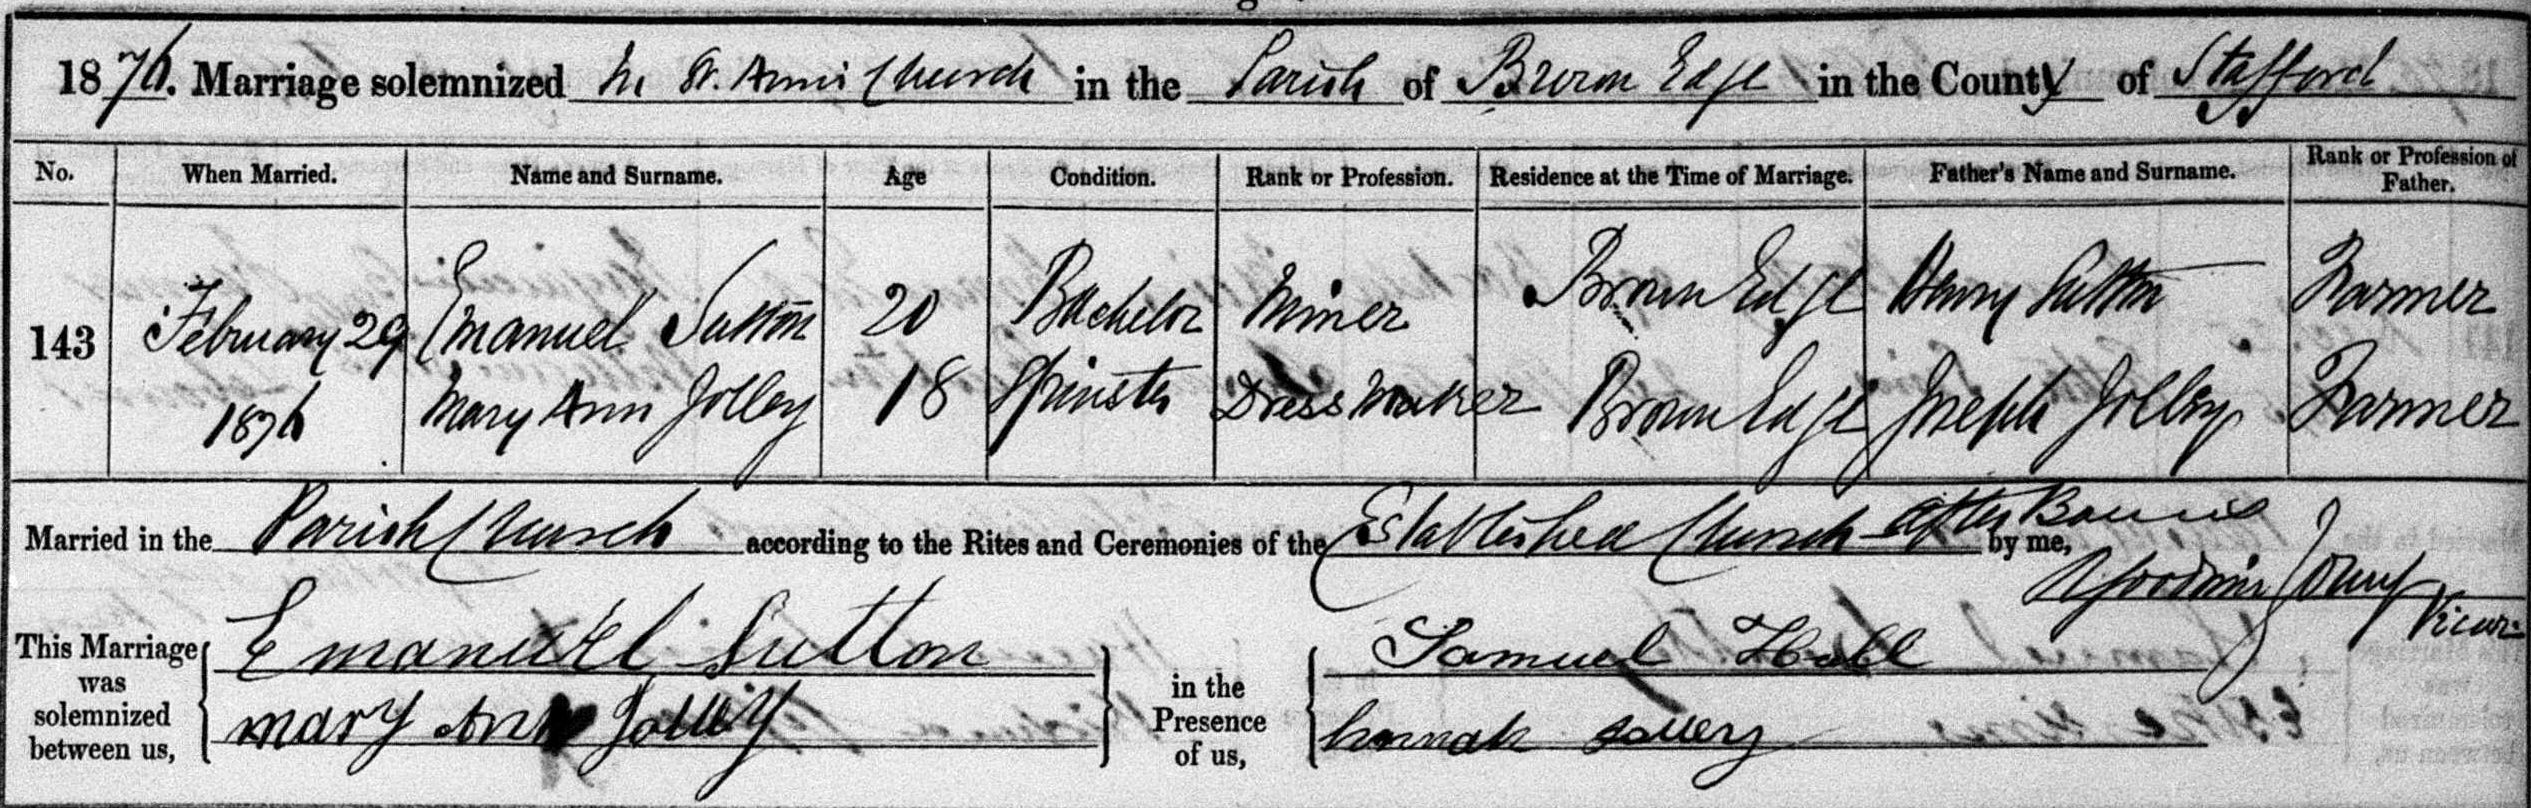 1876. Marriage solemnized in St. Anns Church in the Parish of Brown Edge in the County of Stafford
No. When Married. Name and Surname. Age Condition. Rank or Profession. Residence at the Time of Marriage. Father's Name and Surname. Rank or Profession of Father.
143 February 29 Emanuel Sutton 20 Bachelor Miner Brown Edge Henry Sutton Farmer
1876 Mary Ann Jolley 18 Spinster Dress Maker Brown Edge Joseph Jolley Farmer
Married in the Parish Church according to the Rites and Ceremonies of the Established Church after Banns by me,
Vicar
This Marriage was solemnized between us, Emanuel Sutton
Mary Ann Jolley
in the Presence of us, Samuel Hall
hannah Jolley